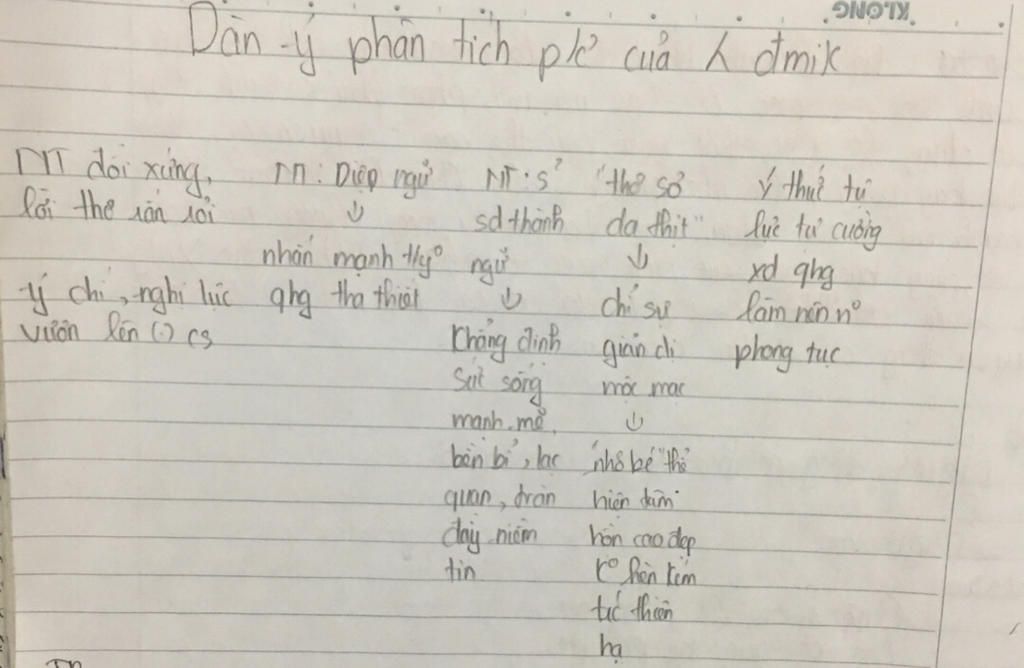 KLONG.
Dàn ý phân tích p/c của λ đmìk
NT đối xứng, lời thơ rắn rỏi
ý chí, nghị lực vươn lên (.) cs
Điệp ngữ
↓
nhấn mạnh t/y
qhg tha thiết
NT: s²
sd thành ngữ
↓
Khẳng định
sức sống
mạnh mẽ,
bền bỉ, lạc
quan, tràn
đầy niềm
tin
"thô sơ
da thịt"
↓
chỉ sự
giản dị
mộc mạc
↓
"nhỏ bé" thể
hiện tâm
hồn cao đẹp
k° hèn kém
tức thiên
hạ
ý thức tự
lực tự cường
xd qhg
làm nên n°
phong tục